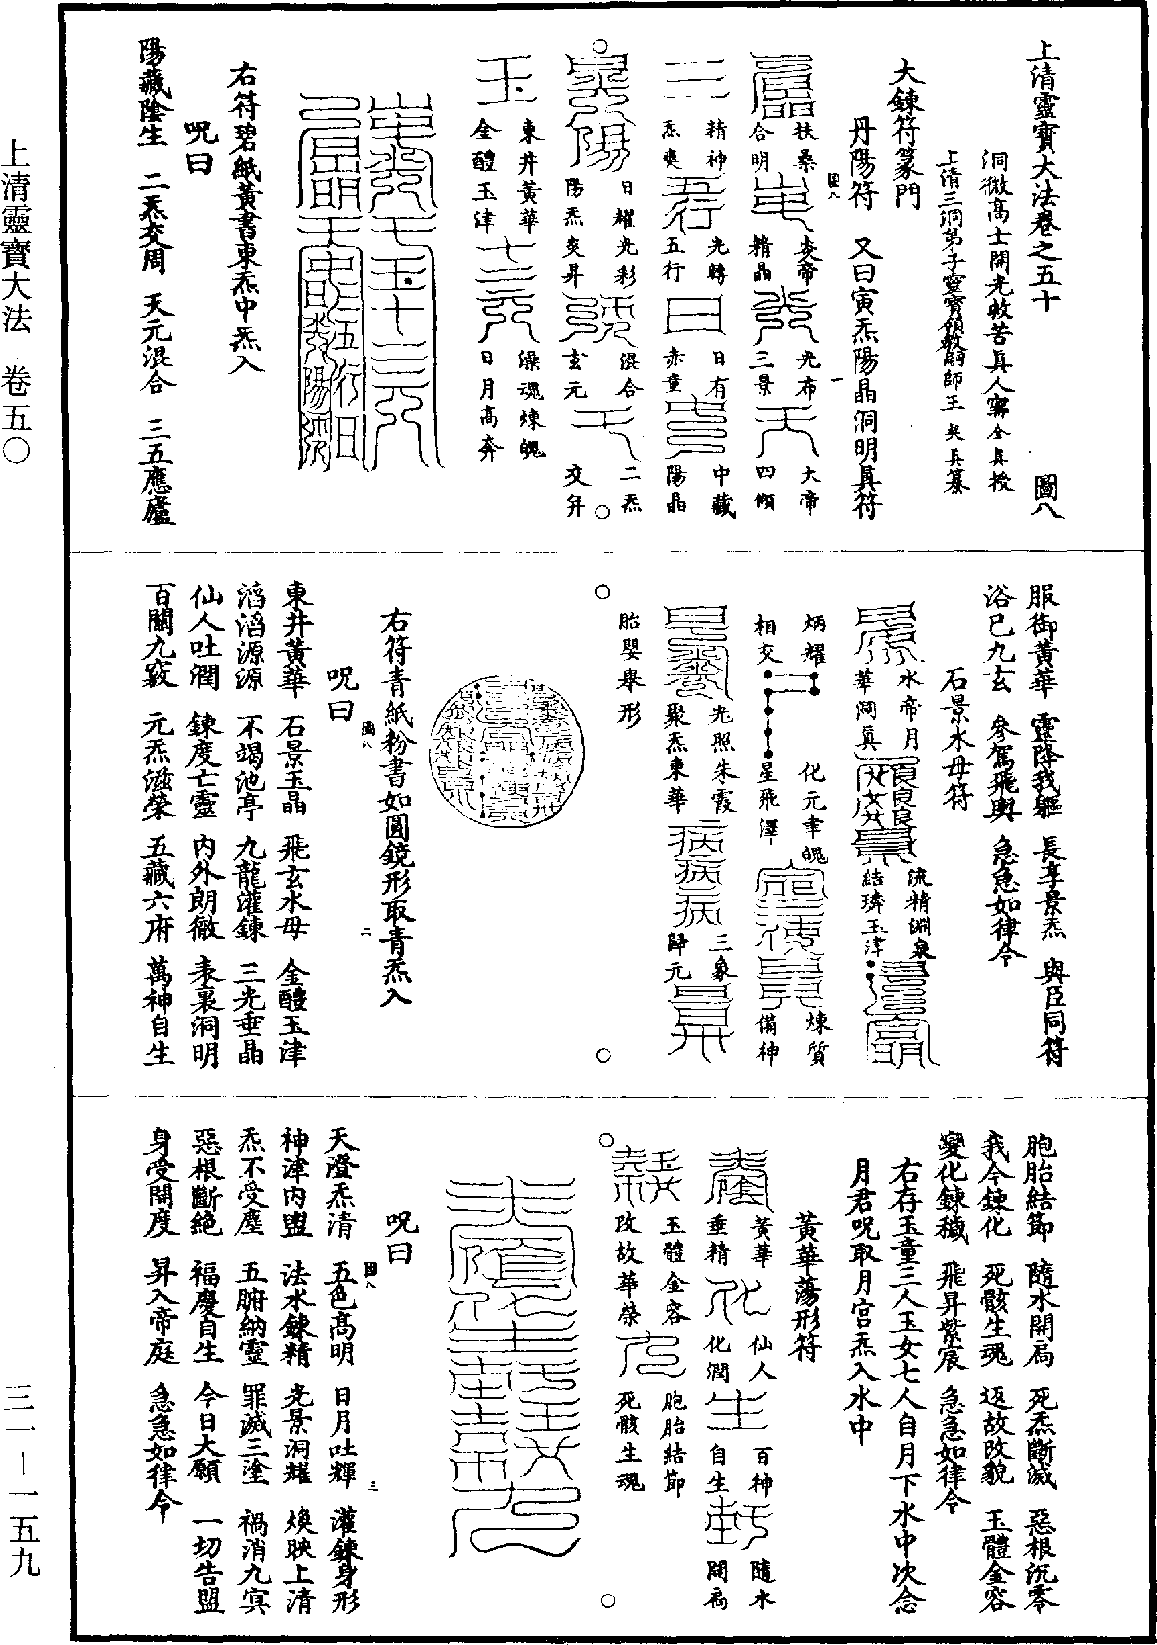 上清靈寶大法　卷五〇
三一－一五九
上清靈寶大法卷之五十　圖八
洞微高士開光救苦真人甯全真授
上清三洞弟子靈寶領教嗣師王契真纂
大鍊符篆門
丹陽符　又曰寅炁陽晶洞明真符
扶桑合明　炎帝精晶　光布三景　大帝四傾
精神炁爽　光轉五行　日有赤童　中藏陽晶
日耀光彩　陽炁爽昇　混合玄元　二炁交升
東井黃華　金醴玉津　澡魂煉魄　日月高奔
右符碧紙黃書東炁中炁入
呪曰
陽藏陰生　二炁交周　天元混合　三五應廬
服御黃華　靈降我軀　長享景炁　與臣同符
浴巳九玄　參駕飛輿　急急如律令
石景水母符
水帝月華洞真　流精淵泉結璘玉津
炳耀相交　化元聿魄星飛澤　煉質備神
光照朱霞聚炁東華　三象歸元
胎嬰舉形
右符青紙粉書如圓鏡形取青炁入
呪曰
東井黃華　石景玉晶　飛玄水母　金醴玉津
滔滔源源　不竭池亭　九龍灌鍊　三光垂晶
仙人吐潤　鍊度亡靈　內外朗徹　表裏洞明
百關九竅　元炁滋榮　五藏六府　萬神自生
胞胎結節　隨水開扃　死炁斷滅　惡根沉零
我今鍊化　死骸生魂　返故改貌　玉體金容
變化鍊穢　飛昇紫宸　急急如律令
右存玉童三人玉女七人自月下水中次念
月君呪取月宮炁入水中
黃華蕩形符
黃華垂精　仙人化潤　百神自生　隨水開扃
玉體金容　改故華榮　胞胎結節　死骸生魂
呪曰
天澄炁清　五色高明　日月吐輝　灌鍊身形
神津內盥　法水鍊精　光景洞耀　煥映上清
炁不受塵　五腑納靈　罪滅三塗　禍消九冥
惡根斷絕　福慶自生　今日大願　一切告盟
身受開度　昇入帝庭　急急如律令